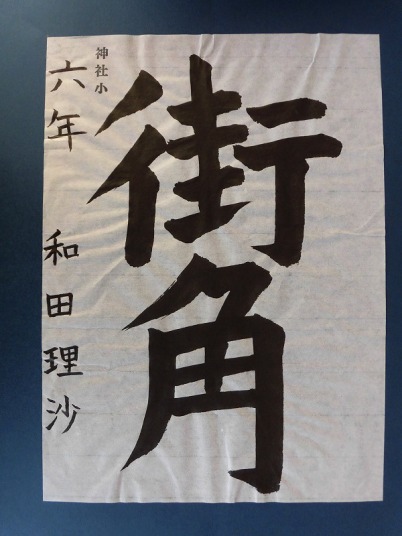 街角
神社小
六年 和田理沙